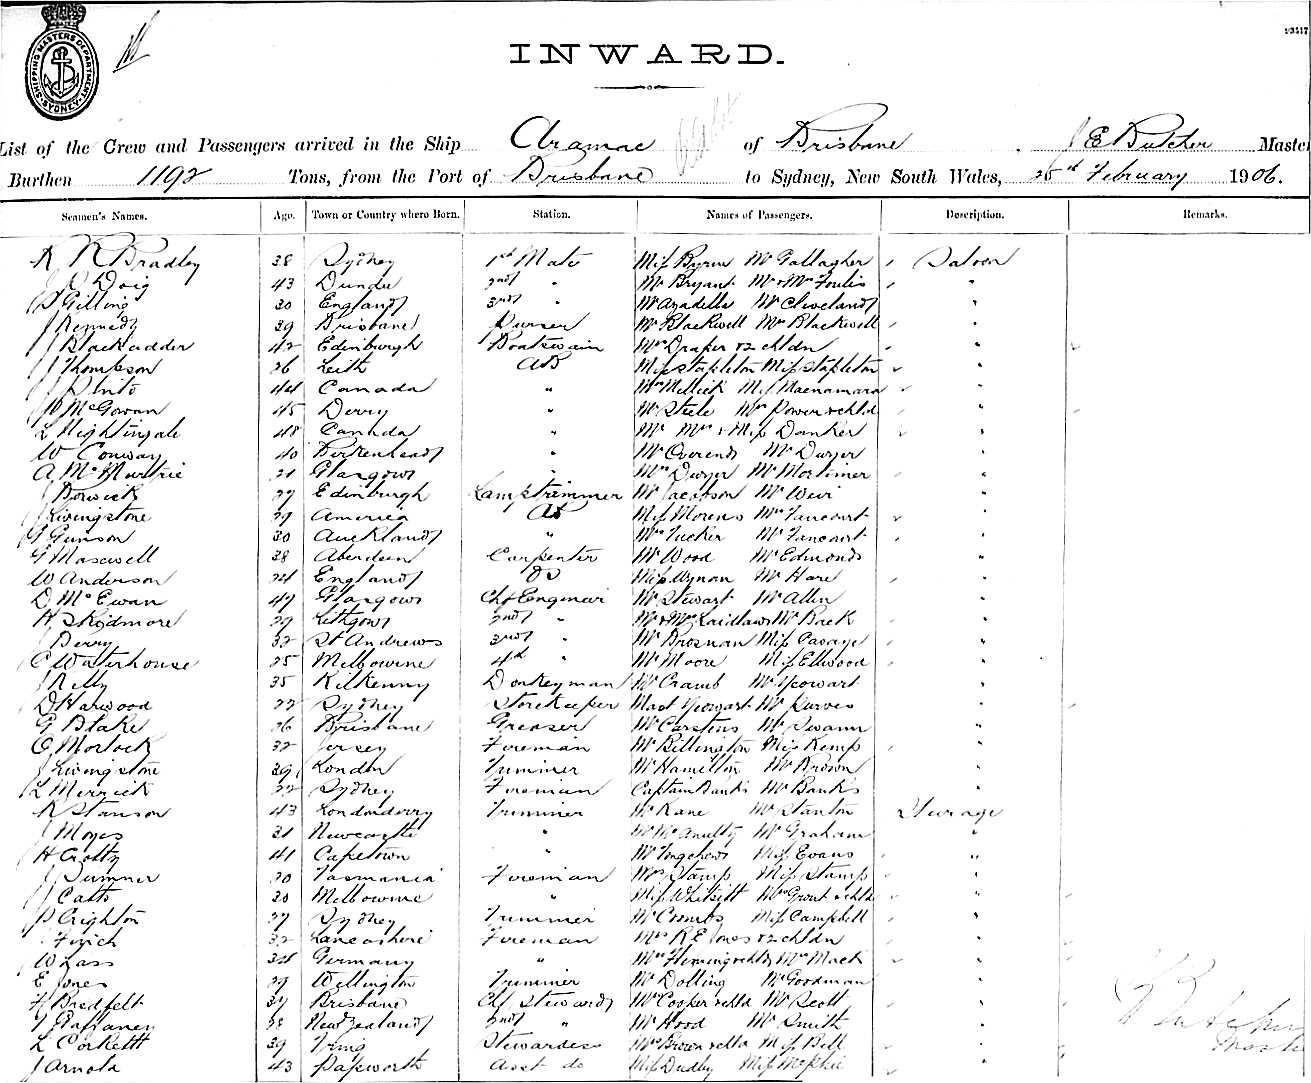 SHIPPING MASTERS DEPARTMENT SYDNEY
INWARD.
List of the Crew and Passengers arrived in the Ship Aramac of Brisbane J E Butcher Master
Burthen 1192 Tons, from the Port of Brisbane to Sydney, New South Wales, 26th February 1906.
Seamen's Names. Age. Town or Country where Born. Station. Names of Passengers. Description. Remarks.
R R Bradley 38 Sydney 1st Mate Miss Byrne Mr Gallagher Saloon
J D Doig 43 Dundee 2nd " Mr Bryant Mr & Mrs Foulis "
S Gilling 30 England 3rd " Mr Azadella Mr Cleveland "
J Kennedy 39 Brisbane Purser Mr Blackwell Mrs Blackwell "
J Blackadder 42 Edinburgh Boatswain Mrs Draper & 2 chldn "
J Thompson 26 Leith AB Miss Stapleton Miss Stapleton "
J Pinto 44 Canada " Mrs Mellick Miss Macnamara "
W McGowan 45 Derry " Mr Steele Mrs Power & chld "
L Nightingale 48 Canada " Mr Mrs & Miss Danker "
W Conway 40 Birkenhead " Mr Overend Mr Dwyer "
A McMurtrie 21 Glasgow " Mrs Dwyer Mr Mortimer "
J Borwick 27 Edinburgh Lamptrimmer Mr Jacobson Mr Weir "
J Livingstone 29 America AB Miss Morens Mrs Fancourt "
G Gunson 30 Auckland " Mrs Tucker Mr Fancourt "
G Maxwell 38 Aberdeen Carpenter Mr Wood Mr Edmonds "
W Anderson 24 England OS Miss Wynan Mr Hare "
D McEwan 47 Glasgow Chf Engineer Mr Stewart Mr Allen "
H Skidmore 29 Lithgow 2nd " Mr & Mrs Laidlaw Mr Back "
J Berry 32 St Andrews 3rd " Mr Brosnan Miss Savage "
C Waterhouse 25 Melbourne 4th " Mr Moore Miss Ellwood "
J Kelly 35 Kilkenny Donkeyman Mr Cramb Mr Yeowart "
D Harwood 22 Sydney Storekeeper Mast Yeowart Mr Purves "
G Blake 26 Brisbane Greaser Mr Carstens Mr Swann "
C Morlock 32 Jersey Fireman Mr Billington Miss Kemp "
J Livingstone 39 London Trimmer Mr Hamilton Mr Brown "
L Merrick 22 Sydney Fireman Captain Banks Mr Banks "
R Stanson 43 Londonderry Trimmer Mr Kane Mr Stanton Steerage
J Moyes 31 Newcastle " Mr McAnulty Mr Graham "
H Crotty 41 Capetown " Mr Miss Evans "
J Sumner 20 Tasmania Fireman Mrs Stamp Miss Stamp "
J Catts 30 Melbourne " Miss Whitsitt Mrs Grout & chld "
P Crighton 27 Sydney Trimmer Mr Coombs Miss Campbell "
Finch 32 Lancashire Fireman Mrs R E Jones & 2 chldn "
W Lass 34 Germany " Mrs Fleming & chld Mrs Mack "
E Jones 29 Wellington Trimmer Mr Dolling Mr Goodman "
H Bredfelt 34 Brisbane Chf Steward Mrs Cooper & chld Mr Scott "
28 New Zealand 2nd " Mr Hood Mr Smith "
L Corkett 39 Tring Stewardess Mrs Brown & chld Miss Bell "
J Arnold 43 Papworth Asst do Miss Dudley Miss McPhie "
J E Butcher
Master